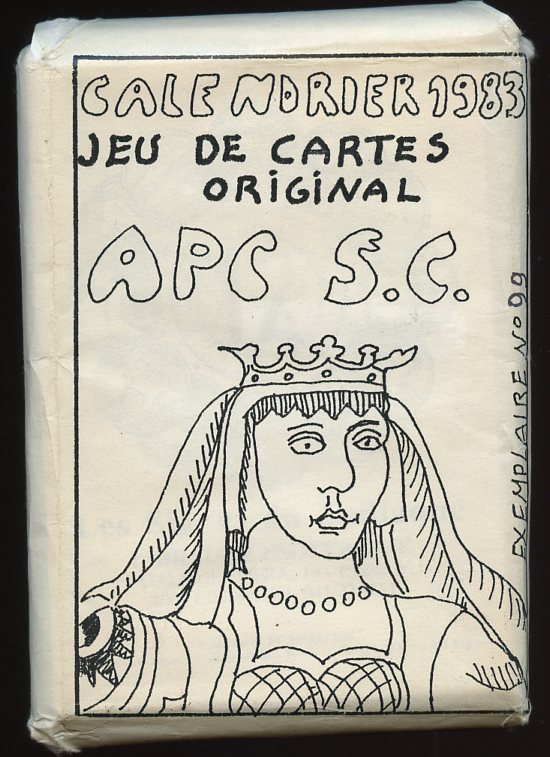 CALENDRIER 1983
JEU DE CARTES
ORIGINAL
APC S.C.
EXEMPLAIRE No 99